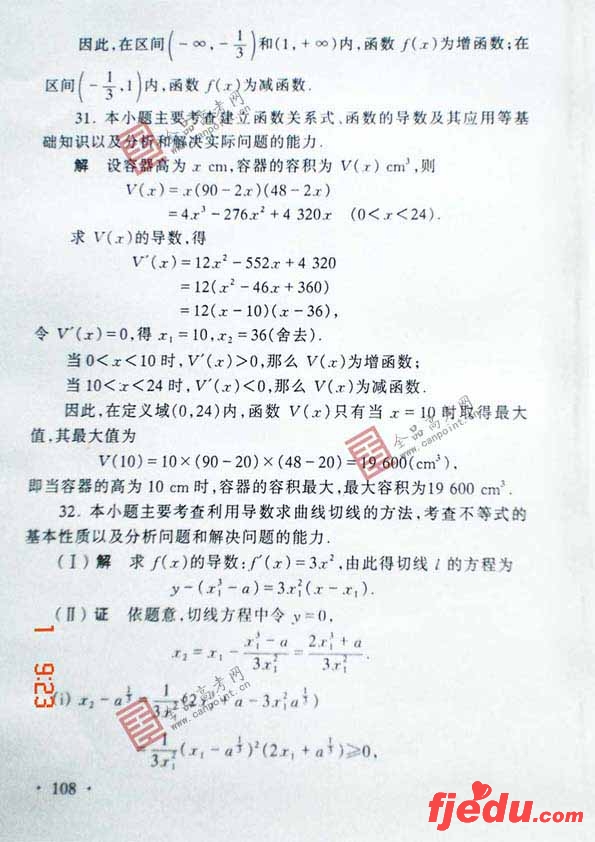 因此,在区间(-∞,-1/3)和(1,+∞)内,函数 f(x)为增函数;在
区间(-1/3,1)内,函数 f(x)为减函数.
31. 本小题主要考查建立函数关系式、函数的导数及其应用等基
础知识以及分析和解决实际问题的能力.
解 设容器高为 x cm,容器的容积为 V(x) cm³,则
V(x)=x(90-2x)(48-2x)
=4x³-276x²+4 320x (0<x<24).
求 V(x)的导数,得
V′(x)=12x²-552x+4 320
=12(x²-46x+360)
=12(x-10)(x-36),
令 V′(x)=0,得 x₁=10,x₂=36(舍去).
当 0<x<10 时,V′(x)>0,那么 V(x)为增函数;
当 10<x<24 时,V′(x)<0,那么 V(x)为减函数.
因此,在定义域(0,24)内,函数 V(x)只有当 x=10 时取得最大
值,其最大值为
V(10)=10×(90-20)×(48-20)=19 600(cm³),
即当容器的高为 10 cm 时,容器的容积最大,最大容积为19 600 cm³.
32. 本小题主要考查利用导数求曲线切线的方法,考查不等式的
基本性质以及分析问题和解决问题的能力.
(Ⅰ) 解 求 f(x)的导数:f′(x)=3x²,由此得切线 l 的方程为
y-(x₁³-a)=3x₁²(x-x₁).
(Ⅱ) 证 依题意,切线方程中令 y=0,
x₂=x₁-(x₁³-a)/(3x₁²)=(2x₁³+a)/(3x₁²).
(i) x₂-a^(1/3)=1/(3x₁²)(2x₁³+a-3x₁²a^(1/3))
=1/(3x₁²)(x₁-a^(1/3))²(2x₁+a^(1/3))≥0,
· 108 ·
全品高考网
www.canpoint.cn
全品高考网
www.canpoint.cn
全品高考网
www.canpoint.cn
1 9:23
fjedu.com